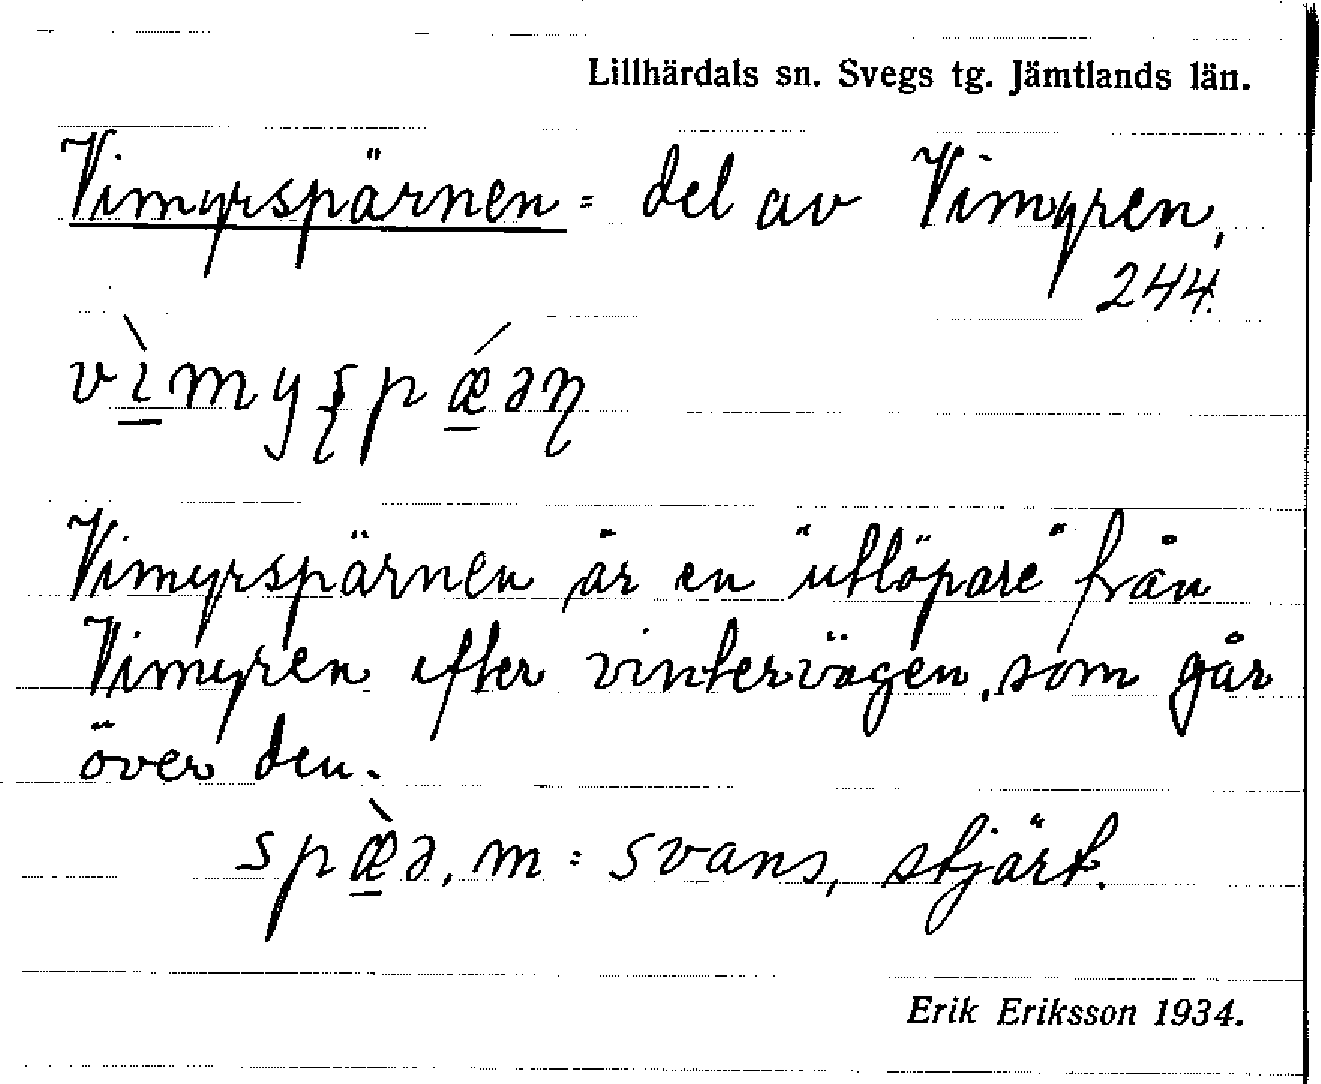 Lillhärdals sn. Svegs tg. Jämtlands län.
Vimyrspärnen = del av Vimyren,
244.
vı̠̀myʂpǽ̠əɳ
Vimyrspärnen är en "utlöpare" från
Vimyren efter vintervägen, som går
över den.
spæ̠̀ə, m = svans, stjärt.
Erik Eriksson 1934.